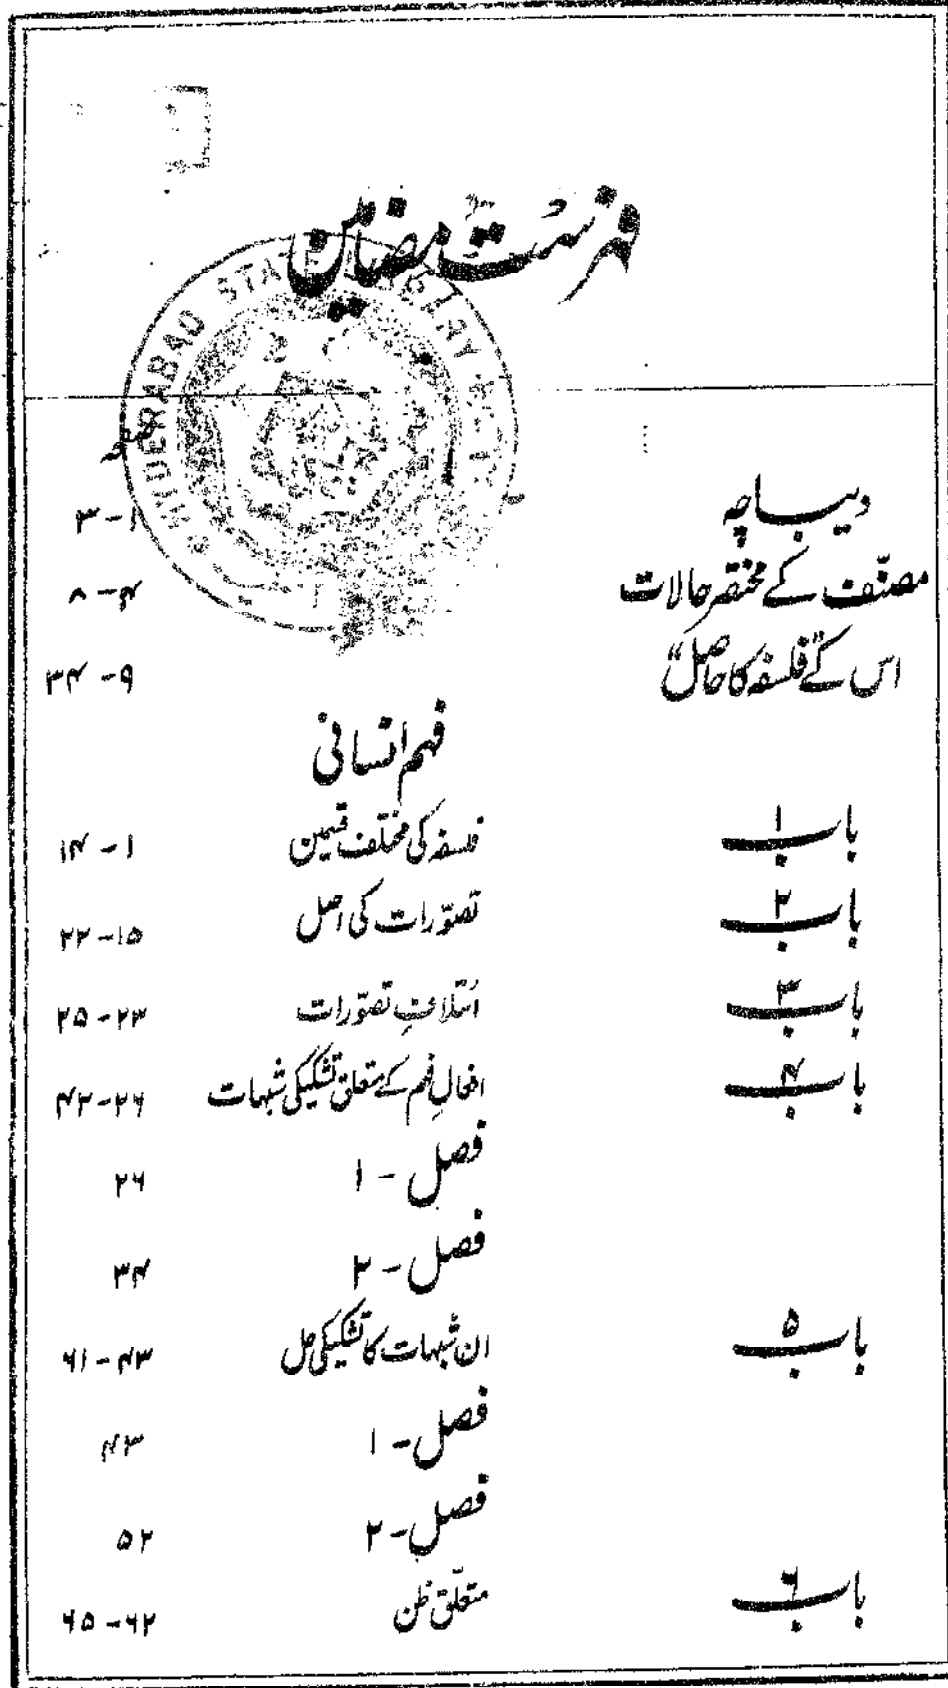 فہرست مضامین
HYDERABAD STATE LIBRARY
صفحہ
دیباچہ ۱-۳
مصنّف کے مختصر حالات ۴-۸
اس کے ”فلسفہ کا حاصل“ ۹-۳۴
فہم انسانی
باب ۱ فلسفہ کی مختلف قسمین ۱-۱۴
باب ۲ تصوّرات کی اصل ۱۵-۲۲
باب ۳ ائتلافِ تصوّرات ۲۳-۲۵
باب ۴ افعالِ فہم کے متعلق تشکیکی شبہات ۲۶-۴۲
فصل - ۱ ۲۶
فصل - ۲ ۳۴
باب ۵ ان شبہات کا تشکیکی حل ۴۳-۶۱
فصل - ۱ ۴۳
فصل - ۲ ۵۲
باب ۶ متعلّق ظن ۶۲-۶۵